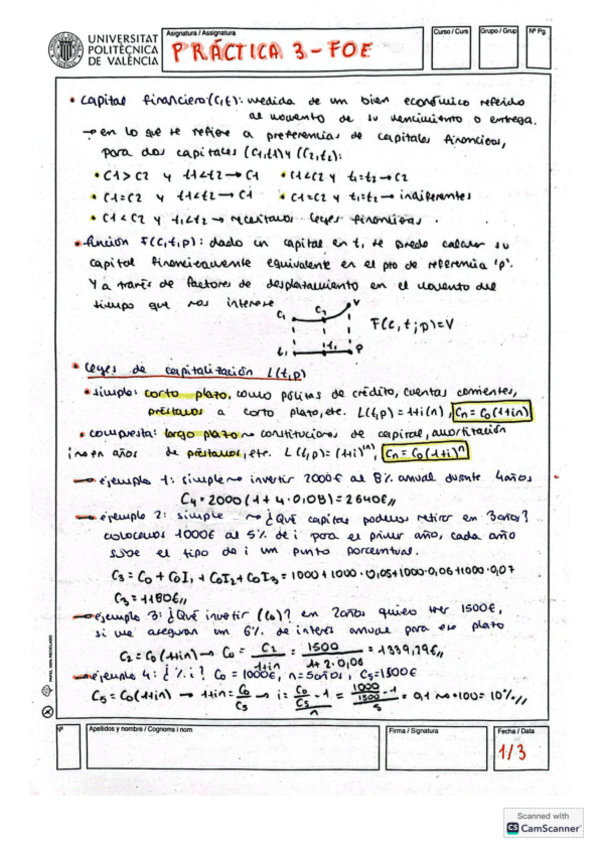 UNIVERSITAT
POLITÈCNICA
DE VALÈNCIA
Asignatura / Assignatura
PRÁCTICA 3 - FOE
Curso / Curs
Grupo / Grup
Nº Pg.
• Capital financiero: (C,t): medida de un bien económico referido
al momento de su vencimiento o entrega.
→ en lo que se refiere a preferencias de capitales financieros,
para dos capitales (C1,t1) y (C2,t2):
• C1 > C2 y t1<t2 → C1 • C1<C2 y t1=t2 → C2
• C1=C2 y t1<t2 → C1 • C1=C2 y t1=t2 → indiferentes
• C1<C2 y t1<t2 → necesitamos leyes financieras.
• función F(C,t,p): dado un capital en t, se puede calcular su
capital financieramente equivalente en el pto de referencia 'p'.
Y a través de factores de desplazamiento en el momento del
tiempo que nos interese
C1 C2 V
F(C,t;p)=V
t1 t2 P
• Leyes de capitalización L(t,p)
• simple: corto plazo, como pólizas de crédito, cuentas corrientes,
préstamos a corto plazo, etc. L(t,p) = 1+i(n), Cn = C0(1+in)
• compuesta: largo plazo ~ constituciones de capital, amortización
¡n en años de préstamos, etc. L(t,p) = (1+i)^(n), Cn = C0(1+i)^n
→ ejemplo 1: simple ~ invertir 2000€ al 8% anual durante 4 años
C4 = 2000(1+4·0,08) = 2640€,,
→ ejemplo 2: simple ~ ¿Qué capital podemos retirar en 3 años?
colocamos 1000€ al 5% de i para el primer año, cada año
sube el tipo de i un punto porcentual.
C3 = C0 + C0I1 + C0I2 + C0I3 = 1000 + 1000·0,05 + 1000·0,06 + 1000·0,07
C3 = 1180€,,
→ ejemplo 3: ¿Qué invertir (C0)? en 2 años quiero tener 1500€,
si me aseguran un 6% de interés anual para ese plazo
C2 = C0(1+in) → C0 = C2/1+in = 1500/1+2·0,06 = 1339,29€,,
→ ejemplo 4: ¿%i? C0 = 1000€, n=5años, C5=1500€
C5 = C0(1+in) → 1+in = C0/C5 → i = C0/C5 -1 / n = 1000/1500 -1 / 5 = 0,1 ~·100 = 10%,,
PAPEL 100% RECICLADO
Nº
Apellidos y nombre / Cognoms i nom
Firma / Signatura
Fecha / Data
1/3
Scanned with
CS CamScanner